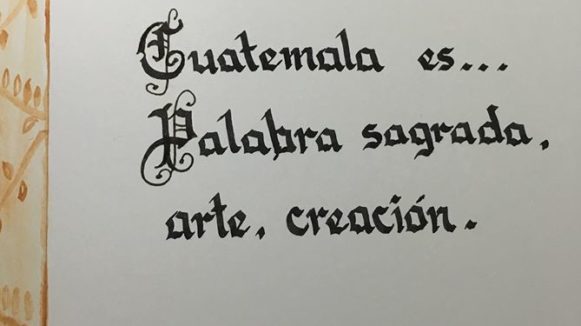 Guatemala es...
Palabra sagrada,
arte, creación.